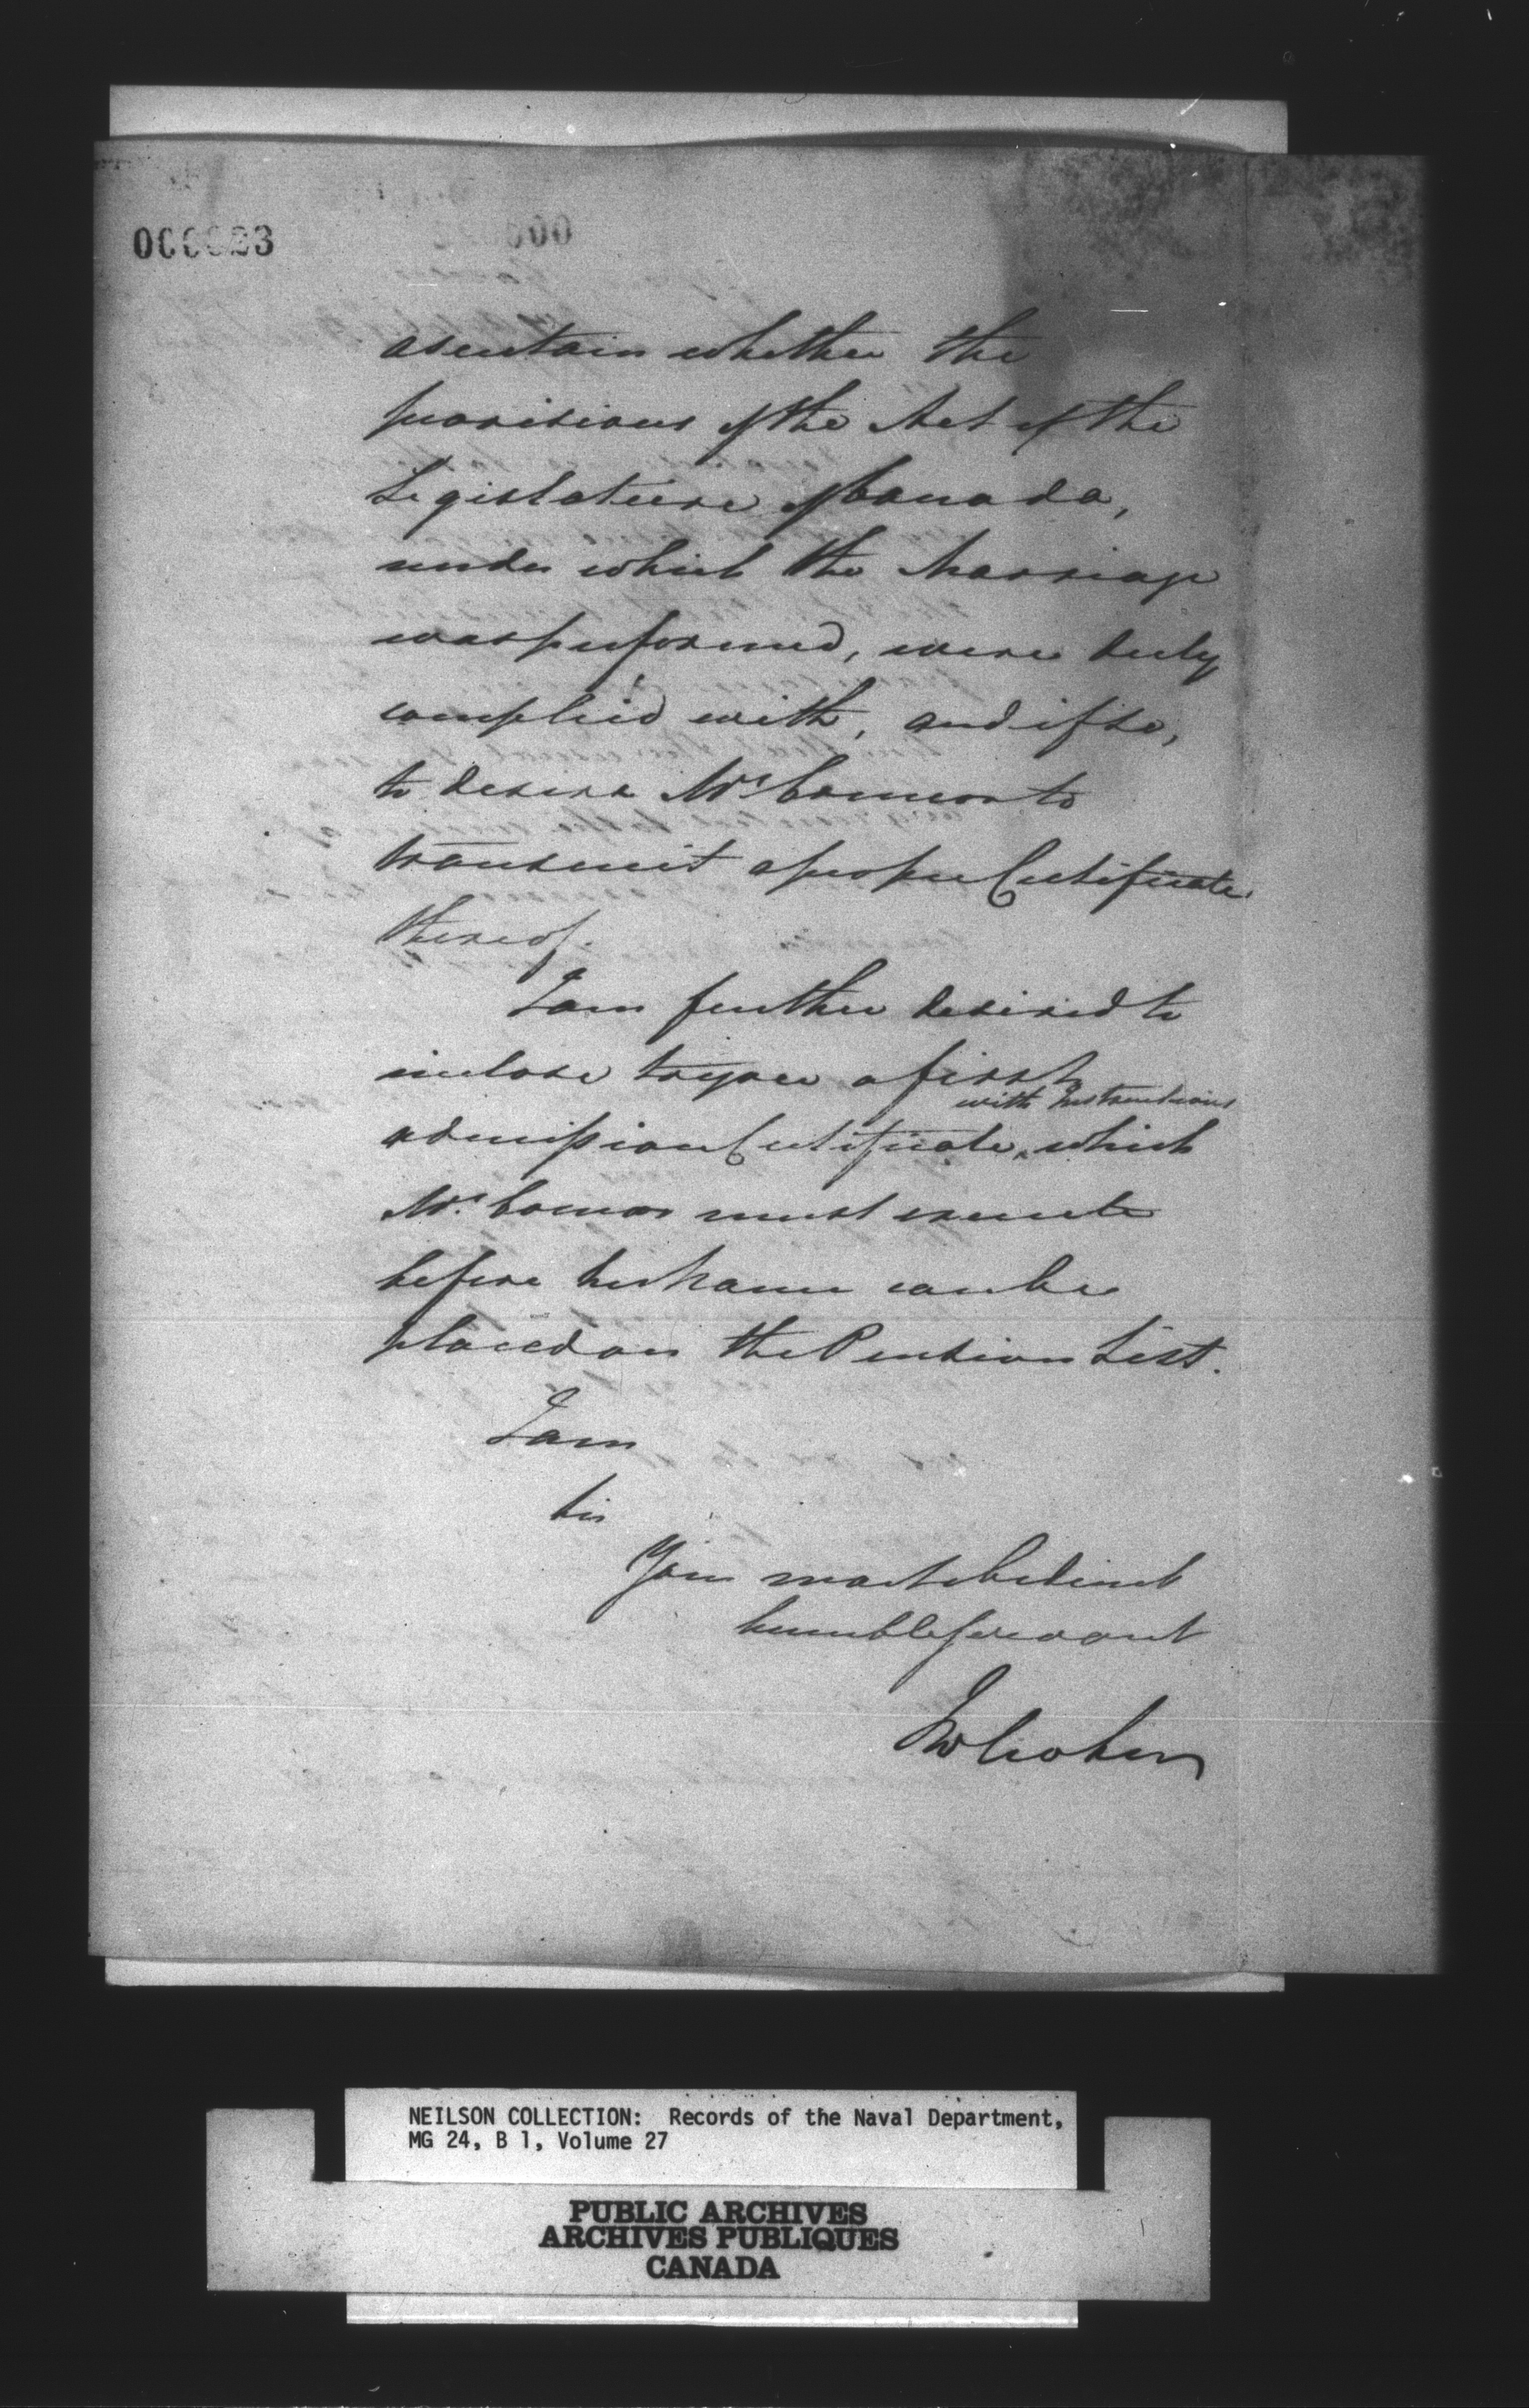 000023
ascertain whether the
provisions of the Act of the
Legislature of Canada,
under which the Marriage
was performed, were duly
complied with, and if so,
to desire Mrs
to
transmit a proper Certificate
thereof.
I am further desired to
inclose to you a first
with Instructions
admission Certificate, which
Mrs. must execute
before her Name can be
placed on the Pension List.
I am
Sir
Your most obedient
humble servant
NEILSON COLLECTION: Records of the Naval Department,
MG 24, B 1, Volume 27
PUBLIC ARCHIVES
ARCHIVES PUBLIQUES
CANADA